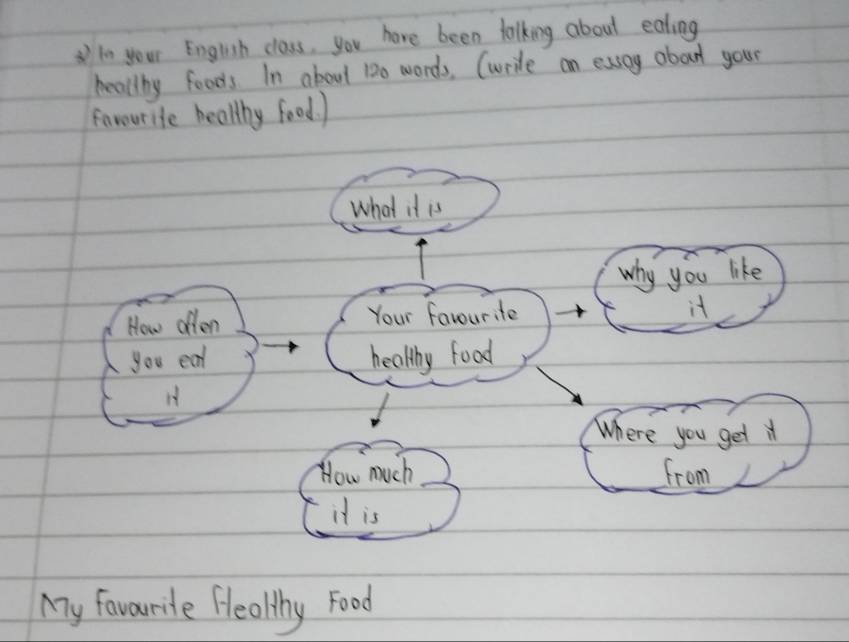 2) In your English class, you have been talking about eating
healthy foods. In about 120 words, (write an essay about your
favourite healthy food.)
What it is
Why you like
it
How often
you eat
it
Your favourite
healthy food
Where you get it
from
How much
it is
My Favourite Healthy Food